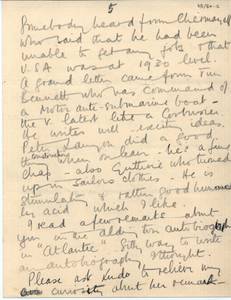 5
Somebody heard from Chermayeff
who said that he had been
unable to get any jobs & that
U.S.A was at 1930 level.
A grand letter came from Tim
Bennett who was command of
a Motor anti-submarine boat –
the v. latest like a
He writes will – exciting ideas.
Peter Lanyon did a good
when on leave. he's a fine
chap – also Guthrie who turned
up in Sailors clothes – He is
stimulating & rather good humoured
acid which I like.
I read a few remarks about
you in the autobiography
in "Atlantic" Silly way to write
an autobiography I thought.
Please ask to relieve my
curiosity about her remark